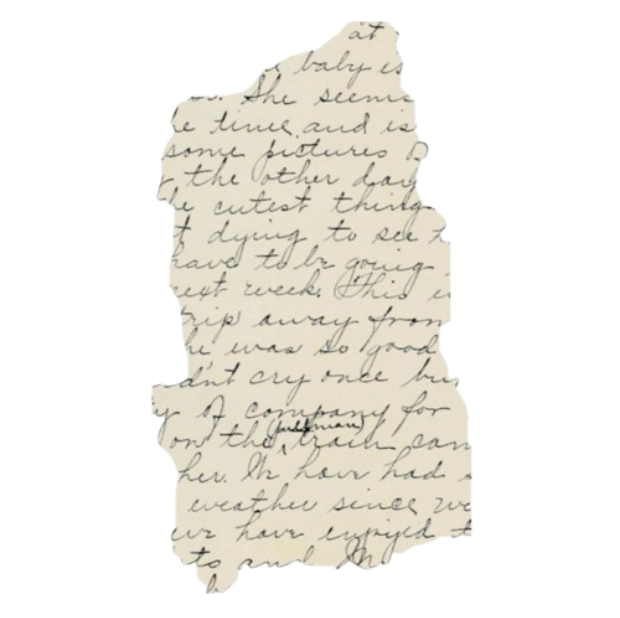 at
baby is
She seems
he time and is
some pictures
the other day
he cutest thing
t dying to see
have to be going
next week. This i
trip away from
he was so good
dn't cry once bu
y of company for
(pullman)
on the train can
her. We have had s
weather since we
we have enjoyed t
ts and M